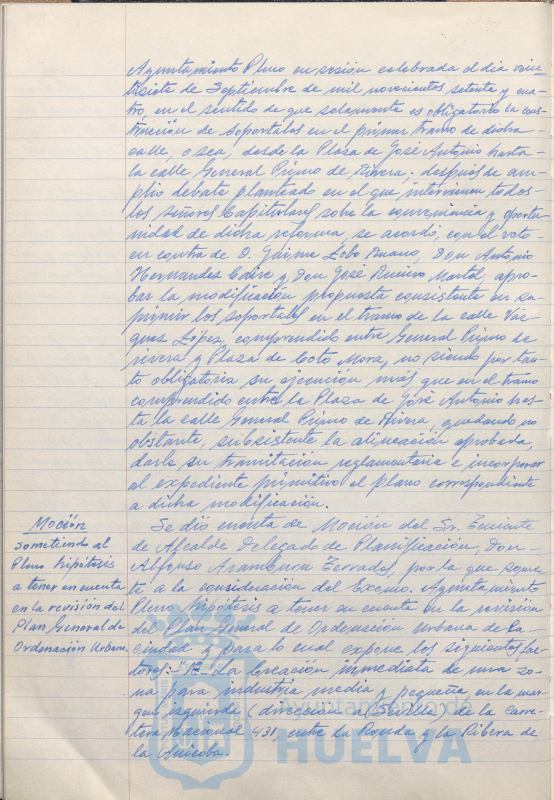 Ayuntamiento Pleno en sesión celebrada el dia vein-
tisiete de Septiembre de mil novecientos setenta y cua-
tro, en el sentido de que solamente es obligatorio la cons-
trucción de soportales en el primer tramo de dicha
calle, o sea, desde la Plaza de José Antonio hasta
la calle General Primo de Rivera; después de am-
plio debate planteado en el que intervienen todos
los señores Capitulares sobre la conveniencia y oportu-
nidad de dicha reforma, se acordó, con el voto
en contra de D. Jaime Lobo Ruano, Don Antonio
Hernandez Caire y Don José Ramirez Martel, apro-
bar la modificación propuesta consistente en su-
primir los soportales en el tramo de la calle Vaz-
quez López, comprendido entre General Primo de
rivera y Plaza de Coto Mora, no siendo por tan-
to obligatoria su ejecución más que en el tramo
comprendido entre la Plaza de José Antonio has-
ta la calle General Primo de Rivera, quedando no
obstante, subsistente la alineación aprobada,
darle su tramitación reglamentaria e incorporar
al expediente primitivo el plano correspondiente
a dicha modificación.
Moción
sometiendo al
Pleno hipótesis
a tener en cuenta
en la revisión del
Plan General de
Ordenación Urbana.
Se dió cuenta de Moción del Sr. Teniente
de Alcalde Delegado de Planificación, Don
Alfonso Aramburu Terrades, por la que somete
a la consideración del Excmo. Ayuntamiento
Pleno hipótesis a tener en cuenta en la revisión
del Plan General de Ordenación Urbana de la
ciudad y para lo cual expone los siguientes fac-
tores: "1º. La creación inmediata de una zo-
na para industria media y pequeña, en la mar-
gen izquierda (dirección a Sevilla) de la Carre-
tera Nacional 431, entre la Ronda y la Ribera de
la Anicoba.
Ayuntamiento de
HUELVA